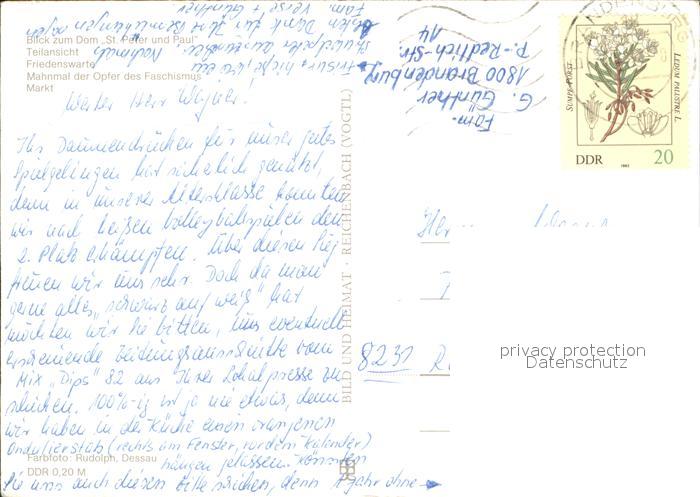 Blick zum Dom „St. Peter und Paul"
Teilansicht
Friedenswarte
Mahnmal der Opfer des Faschismus
Markt
Werter Herr Wagner!
Ihr Daumendrücken für unser gutes
Spielgelingen hat sicherlich genützt,
denn in unserer Altersklasse konnten
wir nach heißen Volleyballspielen den
2. Platz erkämpfen. Über diesen Sieg
freuen wir uns sehr. Doch da man
gerne alles „schwarz auf weiß" hat
möchten wir Sie bitten, uns eventuell
erscheinende Zeitungsausschnitte vom
Mix „Dips" 82 aus Ihrer Lokalpresse zu
schicken. 100%-ig ist ja nie etwas, denn
wir haben in der Küche einen orangenen
Ondulierstab (rechts am Fenster, vor dem Kalender)
hängen gelassen. Könnten
Sie uns auch diesen bitte schicken, denn
ohne
Farbfoto: Rudolph, Dessau
DDR 0,20 M
Fam. Günther
BILD UND HEIMAT · REICHENBACH (VOGTL)
Fam.
G. Günther
1800 Brandenburg
P.-Redlich-Str.
14
BRANDENBURG
SUMPF-PORST
LEDUM PALUSTRE L.
DDR 20
1982
8231
privacy protection
Datenschutz